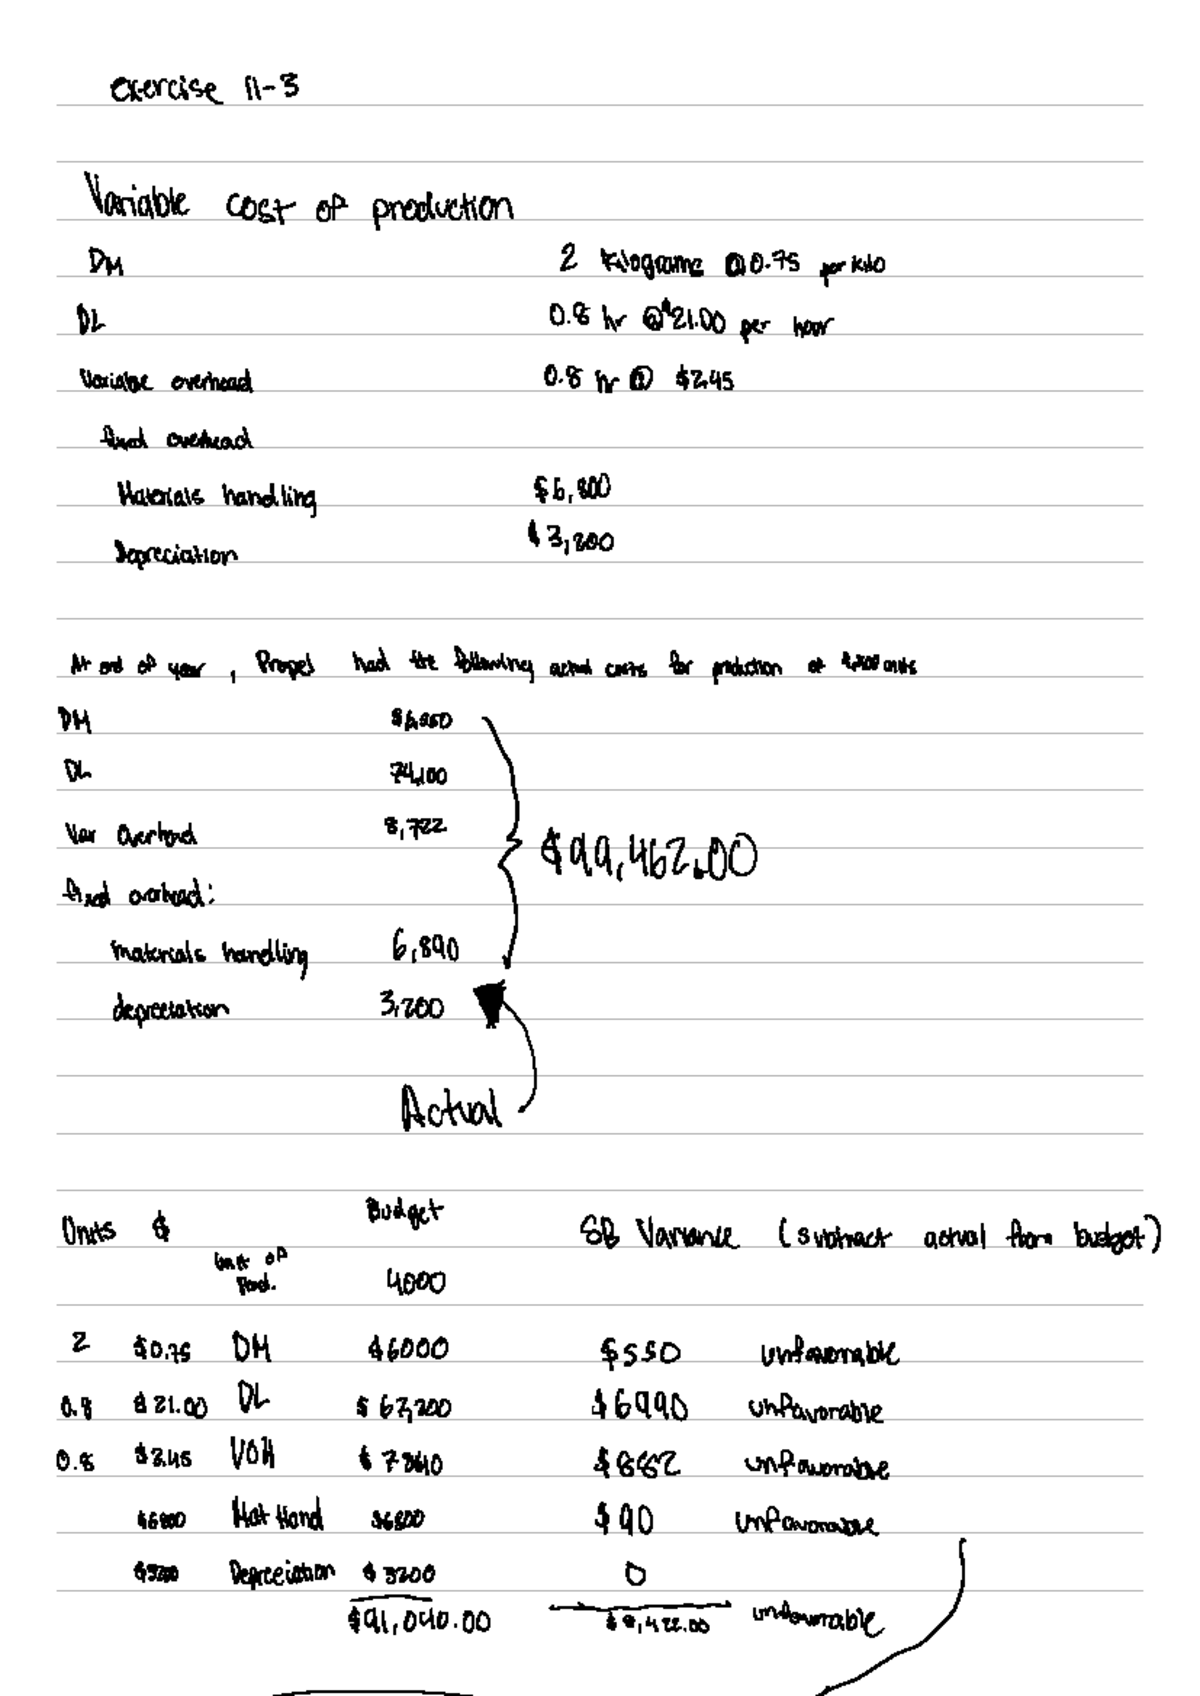 exercise 11-3
Variable cost of production
DM 2 kilograms @ 0.75 per kilo
DL 0.8 hr @ $21.00 per hour
Variable overhead 0.8 hr @ $2.45
fixed overhead
Materials handling $6,800
Depreciation $3,200
At end of year, Propel had the following actual costs for production of units
DM $6,550
DL 74,100
Var Overhead 8,722
fixed overhead:
materials handling 6,890
depreciation 3,200
$99,462.00
Actual
Units $ Unit of Prod. Budget 4000 SB Variance (subtract actual from budget)
2 $0.75 DM $6000 $550 unfavorable
0.8 $21.00 DL $67,200 $6990 unfavorable
0.8 $2.45 VOH $7840 $882 unfavorable
$6800 Mat Hand $6800 $90 unfavorable
$3200 Depreciation $3200 0
$91,040.00 $8,422.00 unfavorable